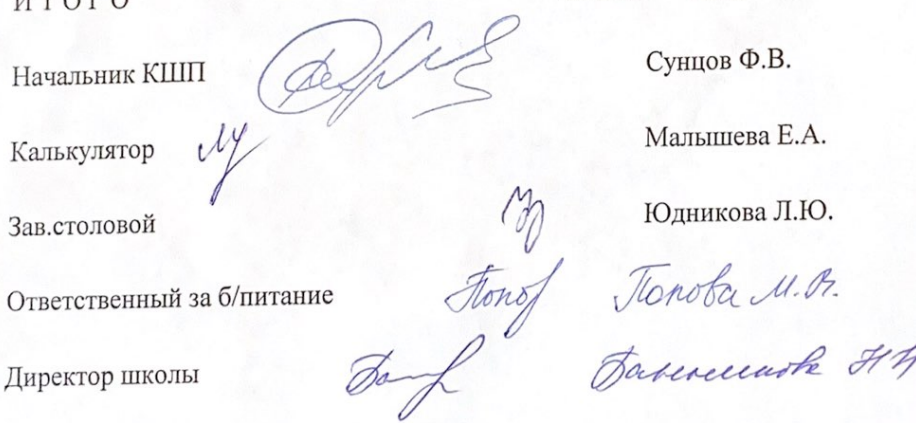 И Т О Г О
Начальник КШП Сунцов Ф.В.
Калькулятор Малышева Е.А.
Зав.столовой Юдникова Л.Ю.
Ответственный за б/питание Попова М.
Директор школы